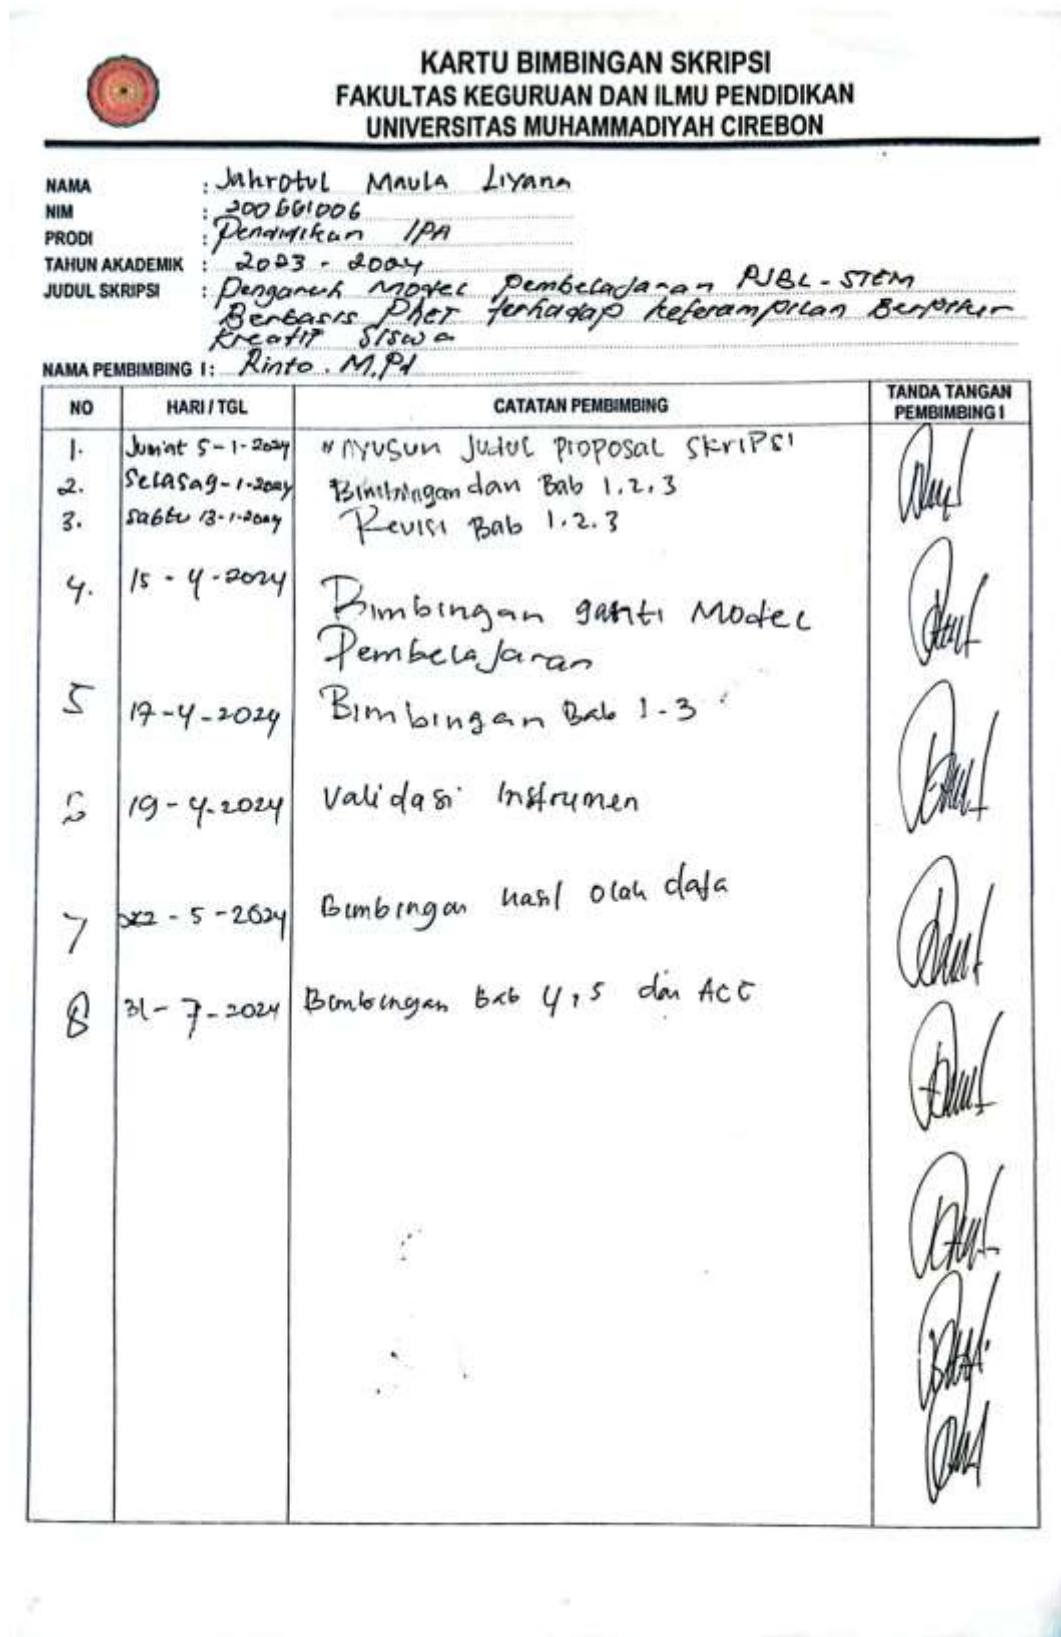 KARTU BIMBINGAN SKRIPSI
FAKULTAS KEGURUAN DAN ILMU PENDIDIKAN
UNIVERSITAS MUHAMMADIYAH CIREBON
NAMA : Jahrotul Maula Liyana
NIM : 200661006
PRODI : Pendidikan IPA
TAHUN AKADEMIK : 2023 - 2024
JUDUL SKRIPSI : Pengaruh Model Pembelajaran PJBL - STEM
Berbasis PhET terhadap keterampilan Berpikir
Kreatif Siswa
NAMA PEMBIMBING I : Rinto . M.Pd
NO HARI / TGL CATATAN PEMBIMBING TANDA TANGAN PEMBIMBING I
1. Jum'at 5-1-2024 Nyusun Judul proposal SKRIPSI
2. Selasa 9-1-2024 Bimbingan dan Bab 1.2.3
3. Sabtu 13-1-2024 Revisi Bab 1.2.3
4. 15 - 4 - 2024 Bimbingan ganti Model
Pembelajaran
5 17-4-2024 Bimbingan Bab 1-3
6 19-4-2024 Validasi Instrumen
7 22-5-2024 Bimbingan hasil olah data
8 31-7-2024 Bimbingan bab 4,5 dan ACC